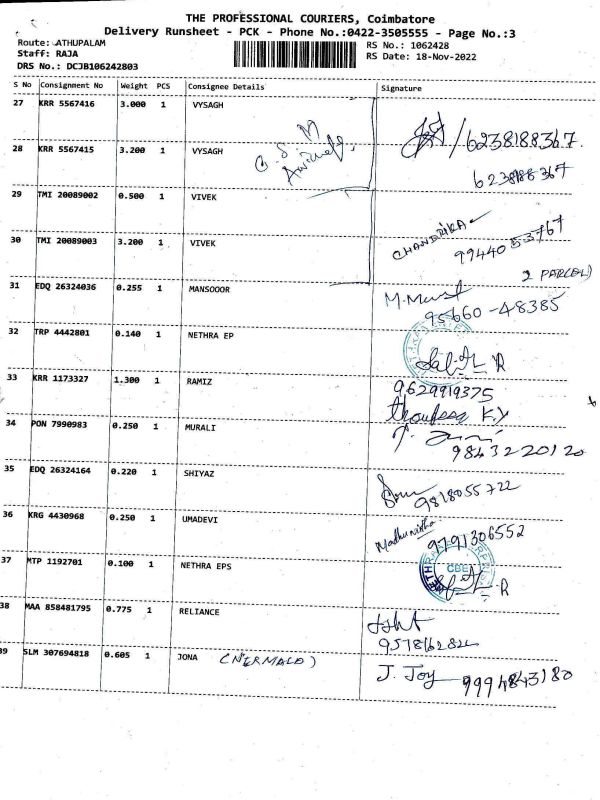 THE PROFESSIONAL COURIERS, Coimbatore
Delivery Runsheet - PCK - Phone No.:0422-3505555 - Page No.:3
Route: ATHUPALAM
RS No.: 1062428
Staff: RAJA
RS Date: 18-Nov-2022
DRS No.: DCJB106242803
S No Consignment No Weight PCS Consignee Details Signature
27 KRR 5567416 3.000 1 VYSAGH /6238188367.
28 KRR 5567415 3.200 1 VYSAGH
29 TMI 20089002 0.500 1 VIVEK
CHANDRIKA
30 TMI 20089003 3.200 1 VIVEK
2 PARCEL)
31 EDQ 26324036 0.255 1 MANSOOOR
95660-48385
32 TRP 4442801 0.140 1 NETHRA EP
33 KRR 1173327 1.300 1 RAMIZ 9629919375
34 PON 7990983 0.250 1 MURALI
9843220120
35 EDQ 26324164 0.220 1 SHIYAZ
9818055722
36 KRG 4430968 0.250 1 UMADEVI
9791306552
37 MTP 1192701 0.100 1 NETHRA EPS
CBE
38 MAA 858481795 0.775 1 RELIANCE
39 SLM 307694818 0.605 1 JONA J. Joy 9994843180